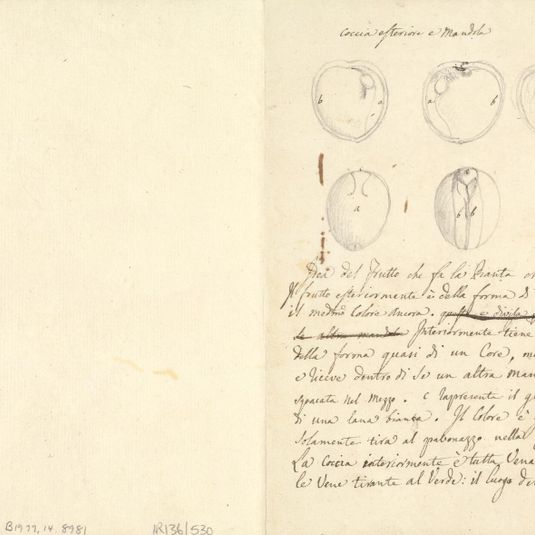 coccia esteriore e Mandola
b a
a b
a
a
b b
Idea del Frutto che fa la Pianta
Il frutto esteriormente è della forma di
il medmo Colore ancora. questo e diviso
se altra mandola Interiormente tiene
della forma quasi di un Core, ma
e riceve dentro di se un altra man
spacata nel mezzo. C rapresente il
di una lana bianca. Il Colore è
solamente tira al pavonazzo nella
La Coccia interiormente è tutta Vena
le Vene tirante al Verde: il luogo
B1977.14.8981
IR136/530